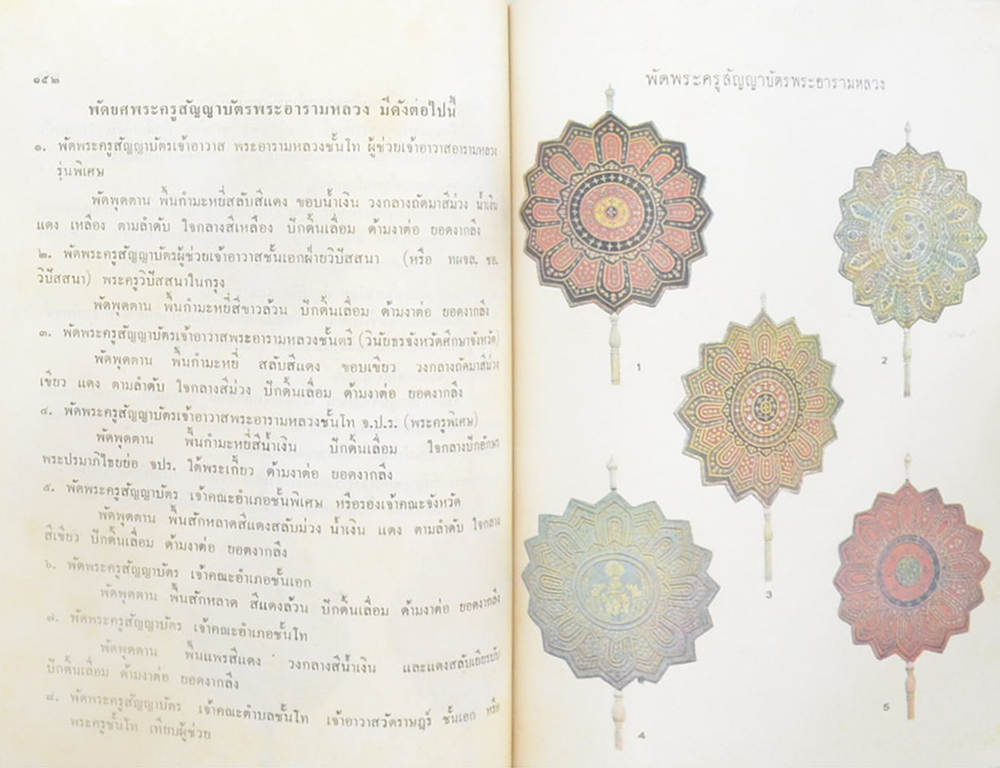 ๑๕๒
พัดยศพระครูสัญญาบัตรพระอารามหลวง มีดังต่อไปนี้
๑. พัดพระครูสัญญาบัตรเจ้าอาวาส พระอารามหลวงชั้นโท ผู้ช่วยเจ้าอาวาสอารามหลวง
รุ่นพิเศษ
พัดพุดตาน พื้นกำมะหยี่สลับสีแดง ขอบน้ำเงิน วงกลางถัดมาสีม่วง น้ำเงิน
แดง เหลือง ตามลำดับ ใจกลางสีเหลือง ปักดิ้นเลื่อม ด้ามงาต่อ ยอดงากลึง
๒. พัดพระครูสัญญาบัตรผู้ช่วยเจ้าอาวาสชั้นเอกฝ่ายวิปัสสนา (หรือ ทผจล. ชอ.
วิปัสสนา) พระครูวิปัสสนาในกรุง
พัดพุดตาน พื้นกำมะหยี่สีขาวล้วน ปักดิ้นเลื่อม ด้ามงาต่อ ยอดงากลึง
๓. พัดพระครูสัญญาบัตรเจ้าอาวาสพระอารามหลวงชั้นตรี (วินัยธรจังหวัดศึกษาจังหวัด)
พัดพุดตาน พื้นกำมะหยี่ สลับสีแดง ขอบเขียว วงกลางถัดมาสีม่วง
เขียว แดง ตามลำดับ ใจกลางสีม่วง ปักดิ้นเลื่อม ด้ามงาต่อ ยอดงากลึง
๔. พัดพระครูสัญญาบัตรเจ้าอาวาสพระอารามหลวงชั้นโท จ.ป.ร. (พระครูพิเศษ)
พัดพุดตาน พื้นกำมะหยี่สีน้ำเงิน ปักดิ้นเลื่อม ใจกลางปักอักษร
พระปรมาภิไธยย่อ จปร. ใต้พระเกี้ยว ด้ามงาต่อ ยอดงากลึง
๕. พัดพระครูสัญญาบัตร เจ้าคณะอำเภอชั้นพิเศษ หรือรองเจ้าคณะจังหวัด
พัดพุดตาน พื้นสักหลาดสีแดงสลับม่วง น้ำเงิน แดง ตามลำดับ ใจกลาง
สีเขียว ปักดิ้นเลื่อม ด้ามงาต่อ ยอดงากลึง
๖. พัดพระครูสัญญาบัตร เจ้าคณะอำเภอชั้นเอก
พัดพุดตาน พื้นสักหลาด สีแดงล้วน ปักดิ้นเลื่อม ด้ามงาต่อ ยอดงากลึง
๗. พัดพระครูสัญญาบัตร เจ้าคณะอำเภอชั้นโท
พัดพุดตาน พื้นแพรสีแดง วงกลางสีน้ำเงิน และแดงสลับ
ปักดิ้นเลื่อม ด้ามงาต่อ ยอดงากลึง
๘. พัดพระครูสัญญาบัตร เจ้าคณะตำบลชั้นโท เจ้าอาวาสวัดราษฎร์ ชั้นเอก หรือ
พระครูชั้นโท เทียบผู้ช่วย
พัดพระครูสัญญาบัตรพระอารามหลวง
1
2
3
4
5